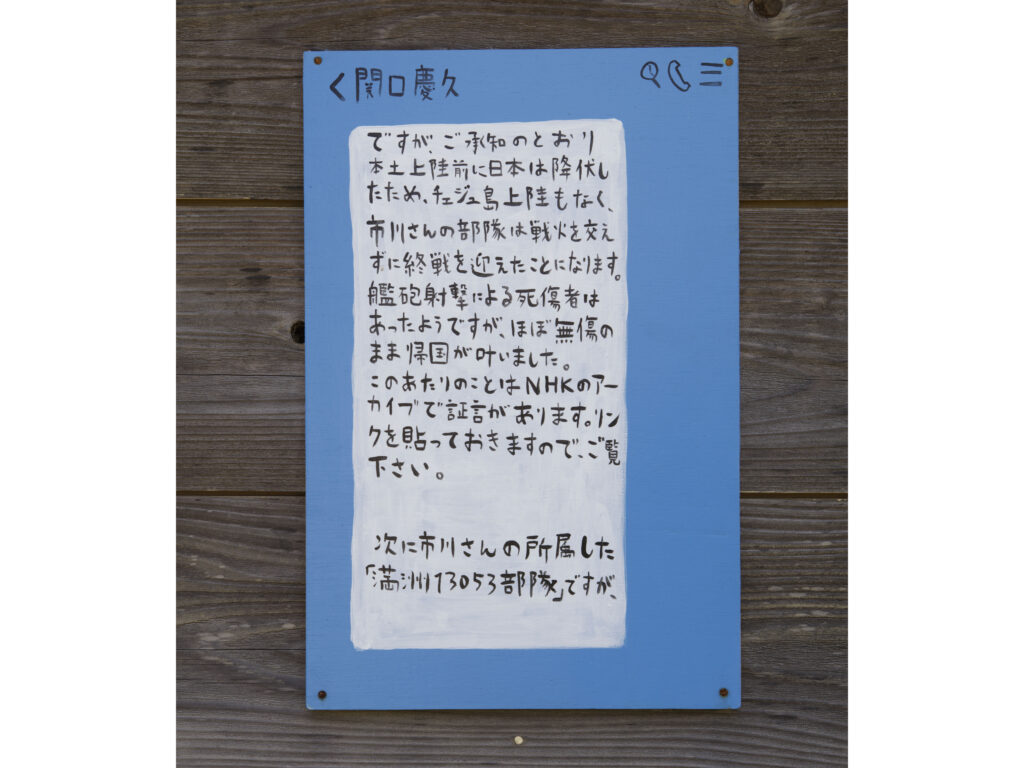 関口慶久
ですが、ご承知のとおり
本土上陸前に日本は降伏し
たため、チェジュ島上陸もなく、
市川さんの部隊は戦火を交え
ずに終戦を迎えたことになります。
艦砲射撃による死傷者は
あったようですが、ほぼ無傷の
まま帰国が叶いました。
このあたりのことはNHKのアー
カイブで証言があります。リン
クを貼っておきますので、ご覧
下さい。
次に市川さんの所属した
「満洲13053部隊」ですが、